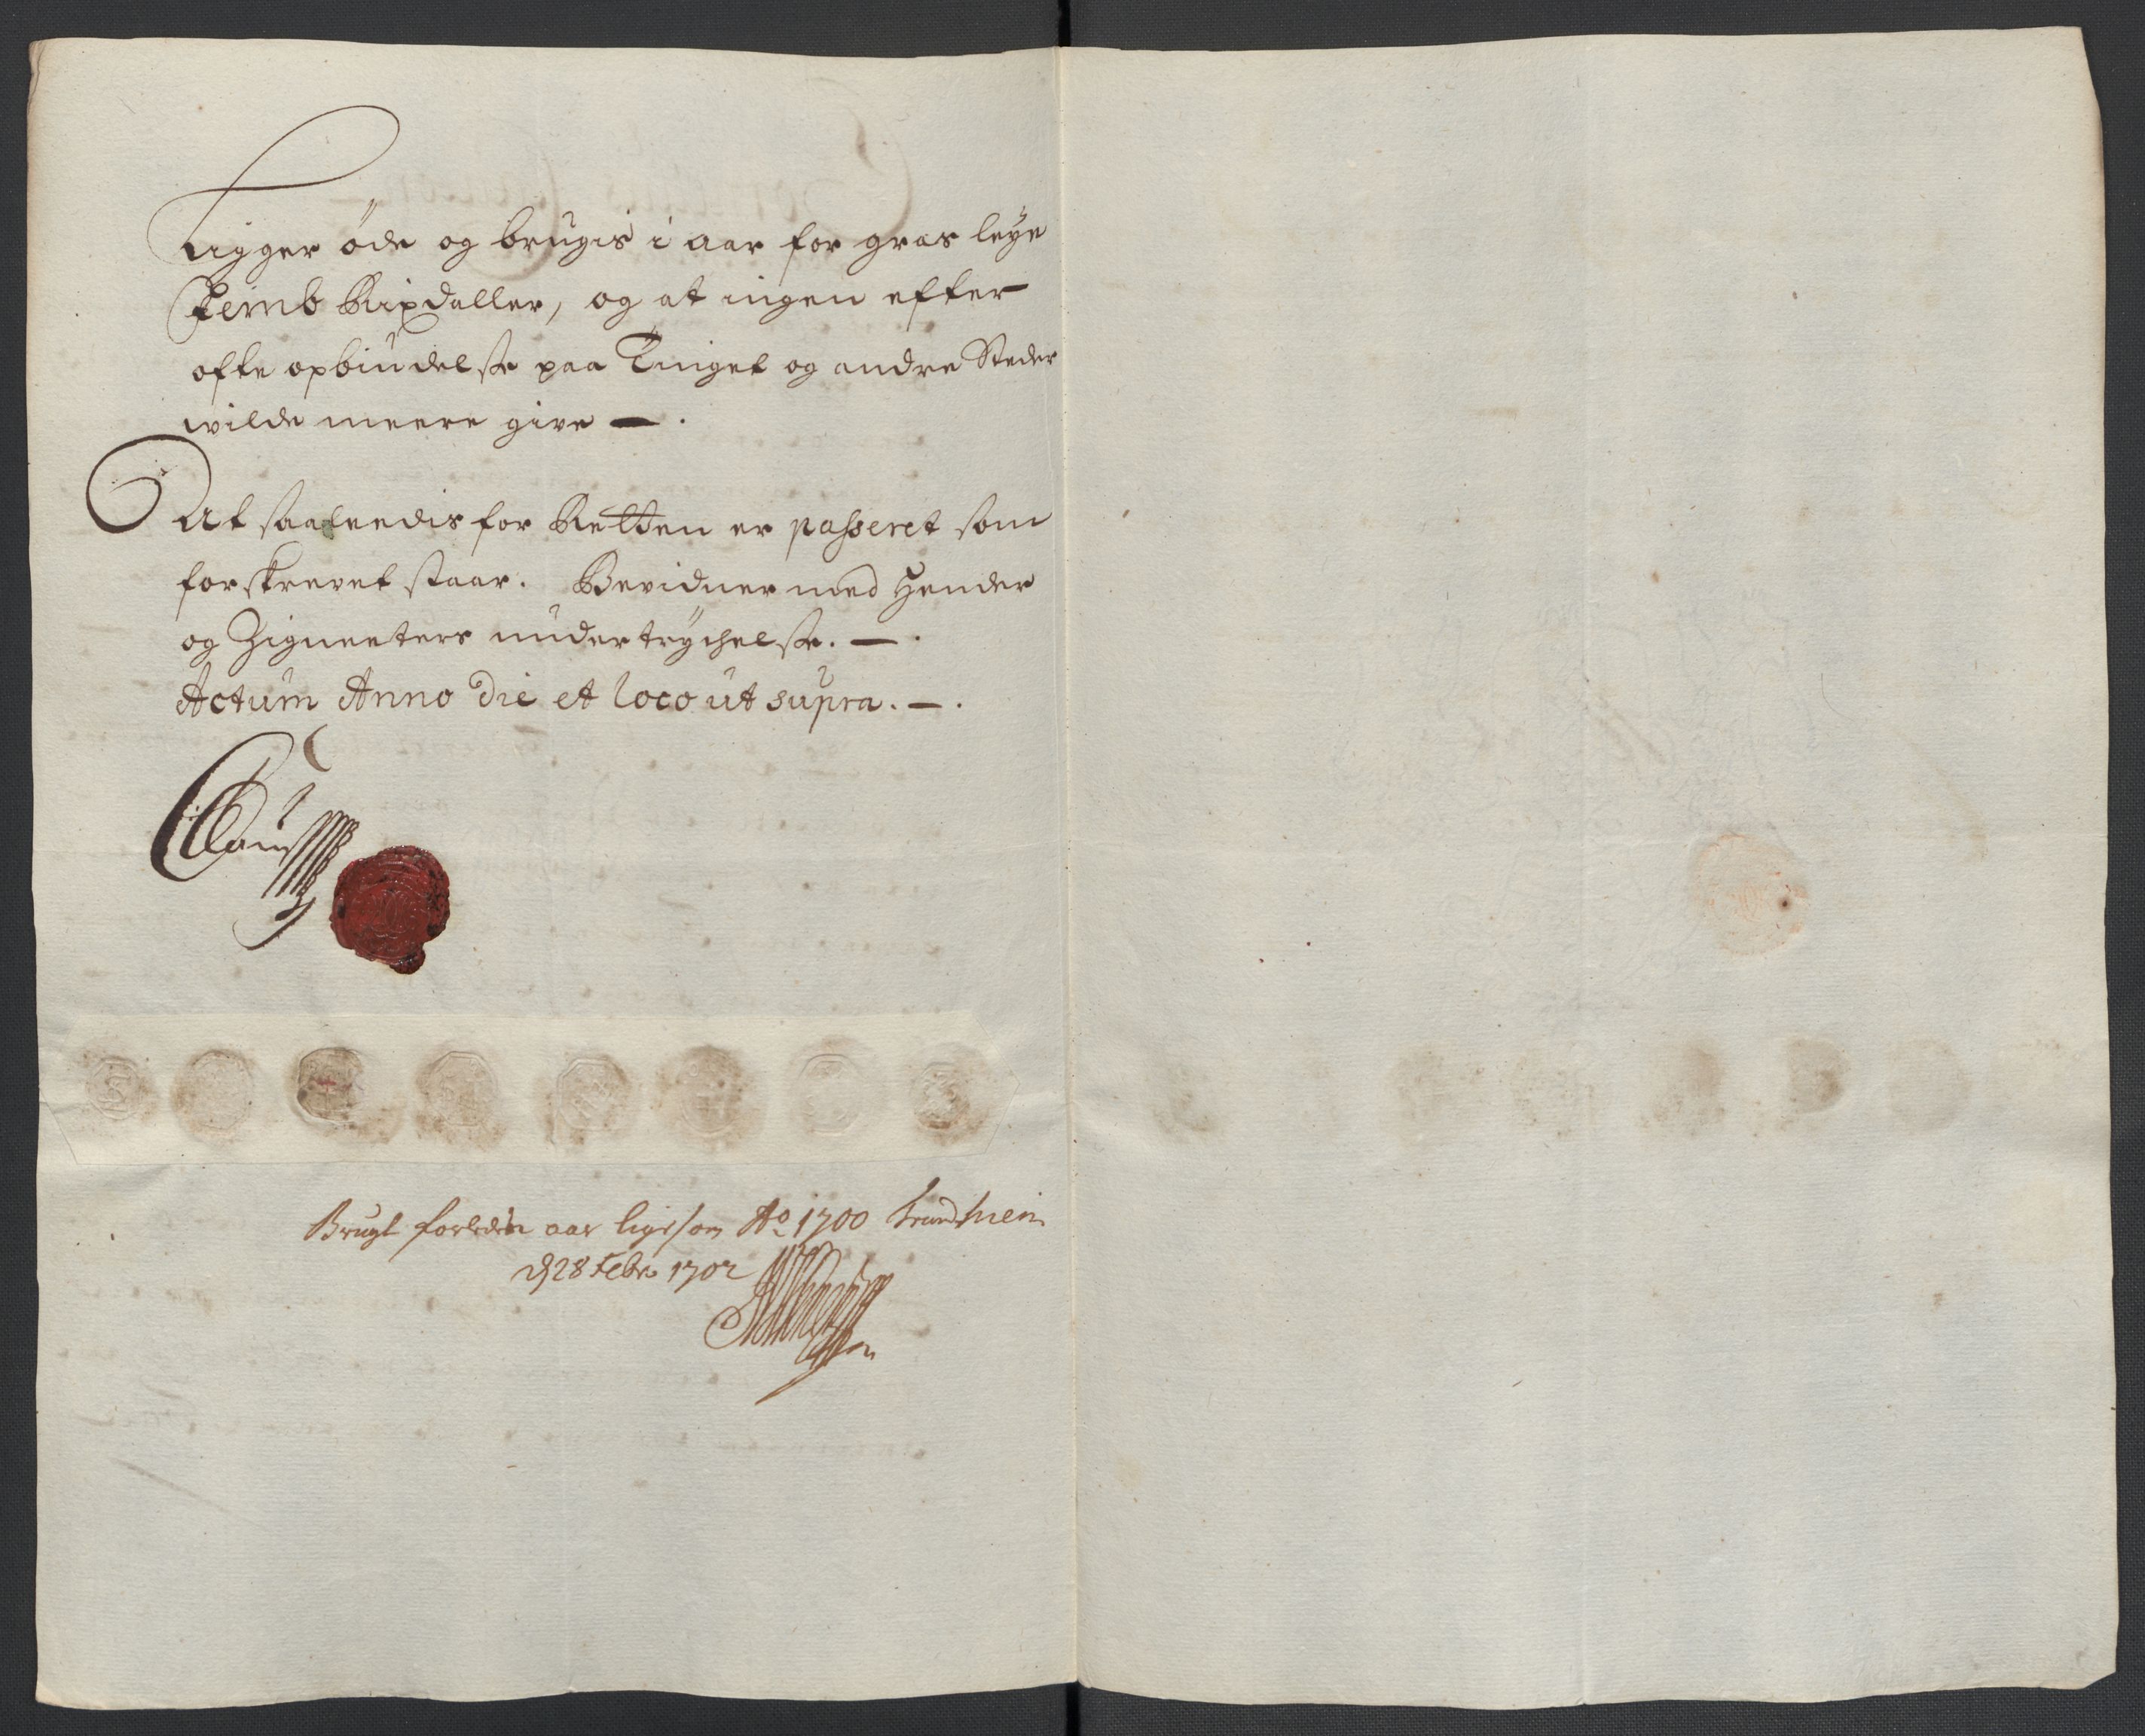 Ligger öde og brugis i aar for græs leye
Femb Rixdaller, og at ingen efter
ofte opbiudelse paa Tinget og andre Steder
wilde meere give — .
At saaleedis for Retten er passeret som
forskrevet staar. Bevidner med Hender
og Zigneeters undertrychelse. — .
Actum Anno Die et loco ut supra. — .
Brugt forleden aar ligesom Ao 1700 Trundhiem
d 28 Febr 1702